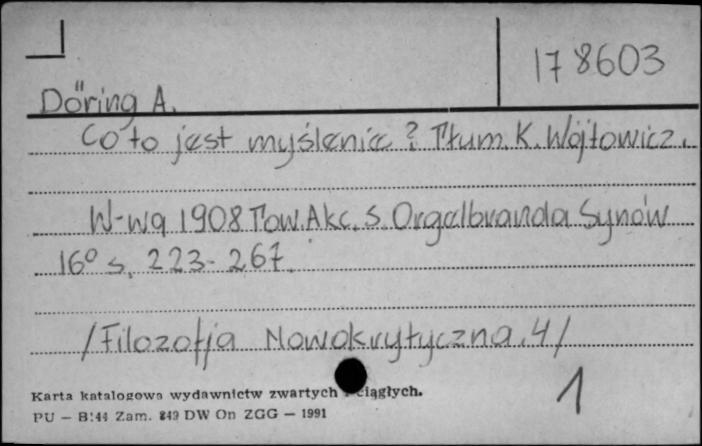 178603
Döring A.
Co to jest myślenie? Tłum. K. Wójtowicz.
W-wa 1908 Tow. Akc. S. Orgelbranda Synów
16° s. 223-267.
/Filozofja Nowokrytyczna. 4/
1
Karta katalogowa wydawnictw zwartych ciągłych.
PU — B!44 Zam. 849 DW Op ZGG — 1991